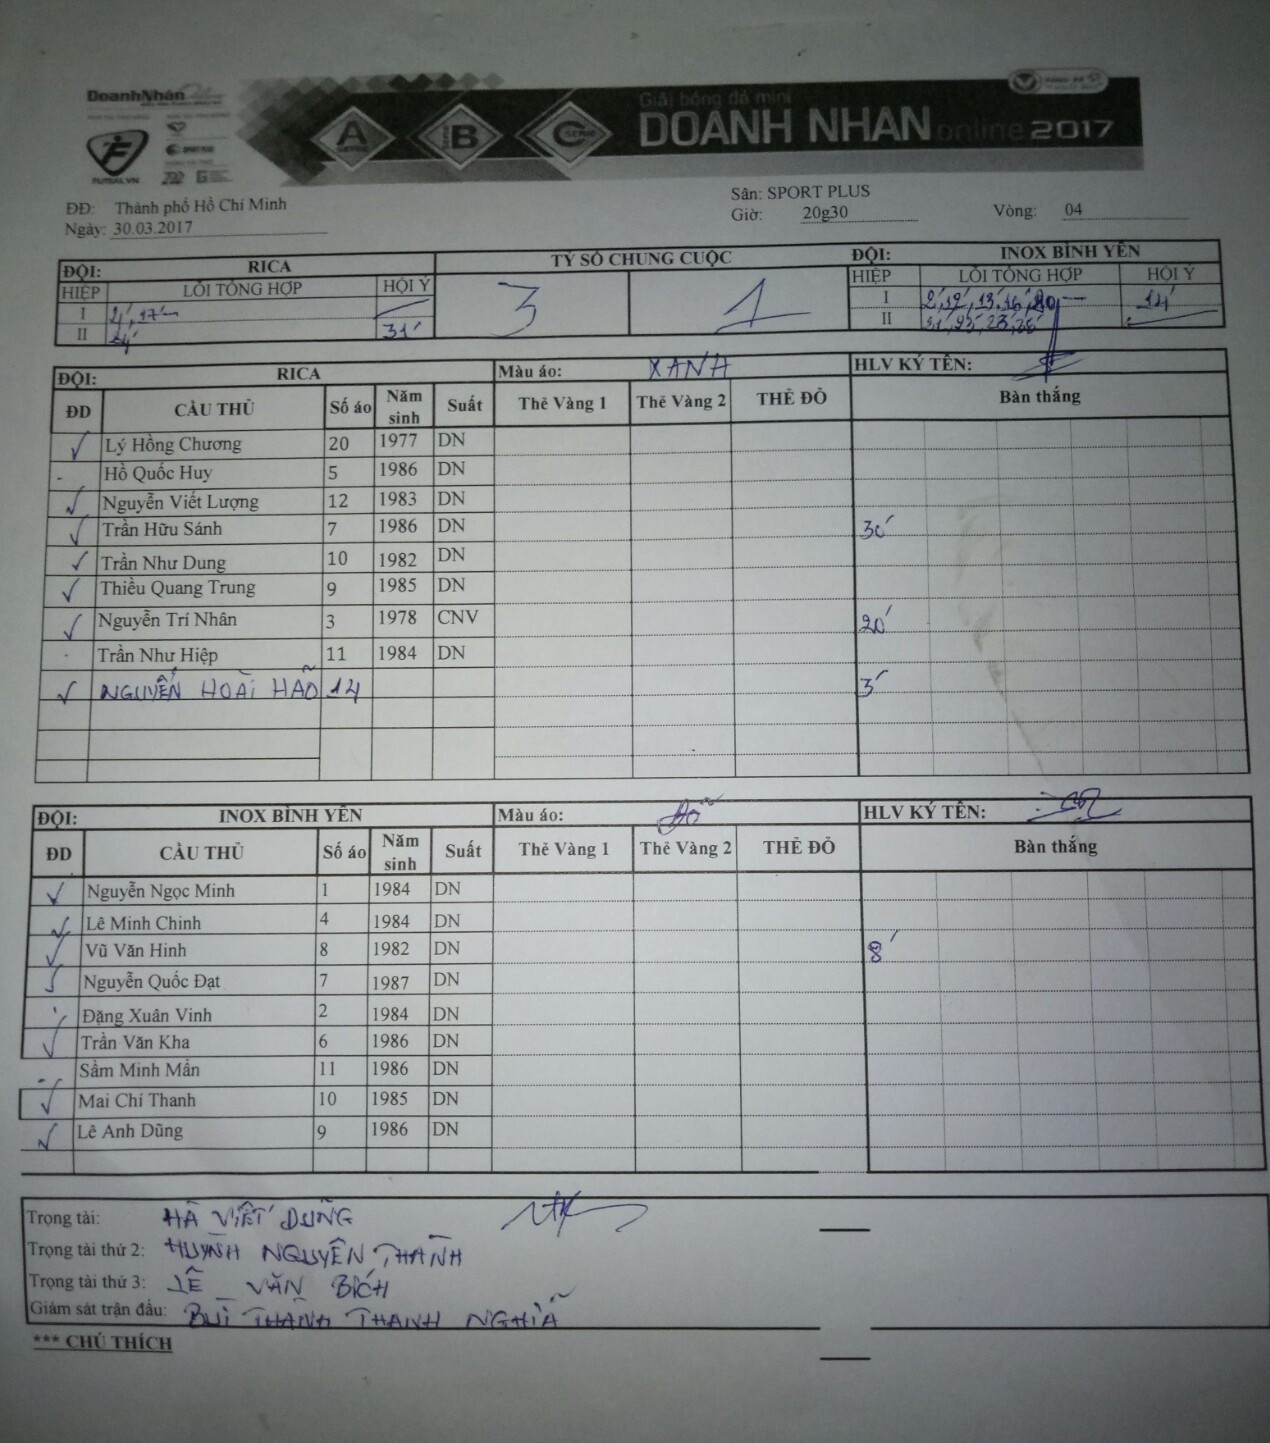 DoanhNhân
FUTSAL.VN
A
B
C
Giải bóng đá mini
DOANH NHAN online 2017
ĐĐ: Thành phố Hồ Chí Minh
Sân: SPORT PLUS
Ngày: 30.03.2017
Giờ: 20g30 Vòng: 04
ĐỘI: RICA TỶ SỐ CHUNG CUỘC ĐỘI: INOX BÌNH YÊN
HIỆP LỖI TỔNG HỢP HỘI Ý 3 1 HIỆP LỖI TỔNG HỢP HỘI Ý
I 17' I 2', 12', 13', 16' 14'
II 31' II
ĐỘI: RICA Màu áo: XANH HLV KÝ TÊN:
ĐD CẦU THỦ Số áo Năm sinh Suất Thẻ Vàng 1 Thẻ Vàng 2 THẺ ĐỎ Bàn thắng
✓ Lý Hồng Chương 20 1977 DN
- Hồ Quốc Huy 5 1986 DN
✓ Nguyễn Viết Lượng 12 1983 DN
✓ Trần Hữu Sánh 7 1986 DN 30'
✓ Trần Như Dung 10 1982 DN
✓ Thiều Quang Trung 9 1985 DN
✓ Nguyễn Trí Nhân 3 1978 CNV 20'
Trần Như Hiệp 11 1984 DN
✓ NGUYỄN HOÀI HÃO 14 3'
ĐỘI: INOX BÌNH YÊN Màu áo: Đỏ HLV KÝ TÊN:
ĐD CẦU THỦ Số áo Năm sinh Suất Thẻ Vàng 1 Thẻ Vàng 2 THẺ ĐỎ Bàn thắng
✓ Nguyễn Ngọc Minh 1 1984 DN
✓ Lê Minh Chinh 4 1984 DN
✓ Vũ Văn Hinh 8 1982 DN 8'
✓ Nguyễn Quốc Đạt 7 1987 DN
Đặng Xuân Vinh 2 1984 DN
✓ Trần Văn Kha 6 1986 DN
Sầm Minh Mẫn 11 1986 DN
✓ Mai Chí Thanh 10 1985 DN
✓ Lê Anh Dũng 9 1986 DN
Trọng tài: HÀ VIẾT DŨNG
Trọng tài thứ 2: HUỲNH NGUYÊN THÀNH
Trọng tài thứ 3: LÊ VĂN BÍCH
Giám sát trận đấu: BÙI THÀNH THANH NGHĨA
*** CHÚ THÍCH